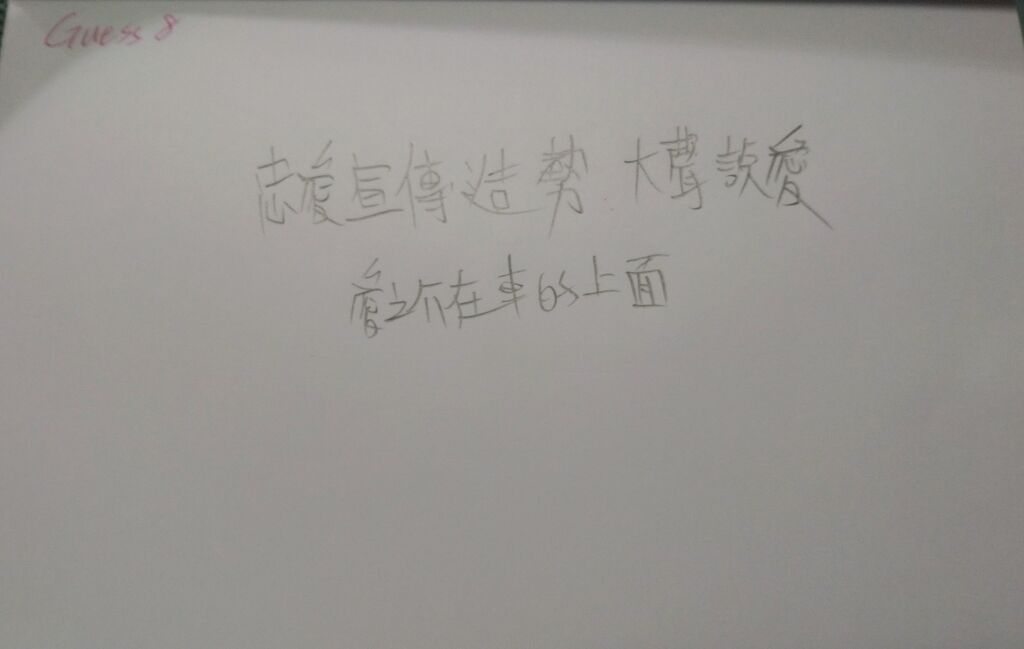 Guess 8
志愛宣傳造勢 大聲說愛
愛的在車的上面